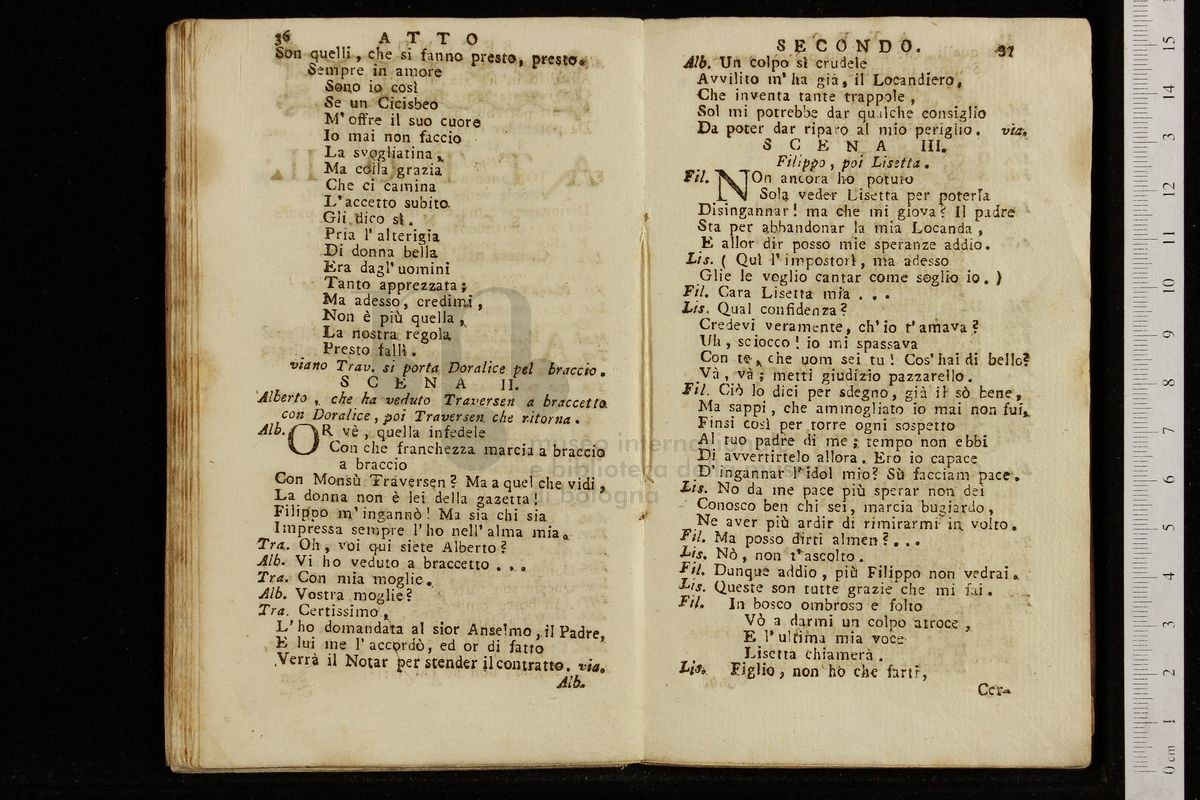 36 ATTO
Son quelli, che si fanno presto, presto.
Sempre in amore
Sono io così
Se un Cicisbeo
M'offre il suo cuore
Io mai non faccio
La svogliatina,
Ma colla grazia
Che ci camina
L'accetto subito
Gli dico sì.
Pria l'alterigia
Di donna bella
Era dagl'uomini
Tanto apprezzata;
Ma adesso, credimi,
Non è più quella,
La nostra regola
Presto fallì.
viano Trav. si porta Doralice pel braccio.
SCENA II.
Alberto, che ha veduto Traversen a braccetto
con Doralice, poi Traversen che ritorna.
Alb. OR vè, quella infedele
Con che franchezza marcia a braccio
a braccio
Con Monsù Traversen? Ma a quel che vidi,
La donna non è lei della gazetta!
Filippo m'ingannò! Ma sia chi sia
Impressa sempre l'ho nell'alma mia.
Tra. Oh, voi qui siete Alberto?
Alb. Vi ho veduto a braccetto...
Tra. Con mia moglie.
Alb. Vostra moglie?
Tra. Certissimo,
L'ho domandata al sior Anselmo, il Padre,
E lui me l'accordò, ed or di fatto
Verrà il Notar per stender il contratto. via.
Alb.
SECONDO. 37
Alb. Un colpo sì crudele
Avvilito m'ha già, il Locandiero,
Che inventa tante trappole,
Sol mi potrebbe dar qualche consiglio
Da poter dar riparo al mio periglio. via.
SCENA III.
Filippo, poi Lisetta.
Fil. NOn ancora ho potuto
Sola veder Lisetta per poterla
Disingannar! ma che mi giova? Il padre
Sta per abbandonar la mia Locanda,
E allor dir posso mie speranze addio.
Lis. (Quì l'impostor!, ma adesso
Glie le voglio cantar come soglio io.)
Fil. Cara Lisetta mia...
Lis. Qual confidenza?
Credevi veramente, ch'io t'amava?
Uh, sciocco! io mi spassava
Con te, che uom sei tu! Cos'hai di bello?
Và, và; metti giudizio pazzarello.
Fil. Ciò lo dici per sdegno, già il sò bene,
Ma sappi, che ammogliato io mai non fui,
Finsi così per torre ogni sospetto
Al tuo padre di me; tempo non ebbi
Di avvertirtelo allora. Ero io capace
D'ingannar l'idol mio? Sù facciam pace.
Lis. No da me pace più sperar non dei
Conosco ben chi sei, marcia bugiardo,
Ne aver più ardir di rimirarmi in volto.
Fil. Ma posso dirti almen?...
Lis. Nò, non t'ascolto.
Fil. Dunque addio, più Filippo non vedrai.
Lis. Queste son tutte grazie che mi fai.
Fil. In bosco ombroso e folto
Vò a darmi un colpo atroce,
E l'ultima mia voce
Lisetta chiamerà.
Lis. Figlio, non ho che farti,
Cer-